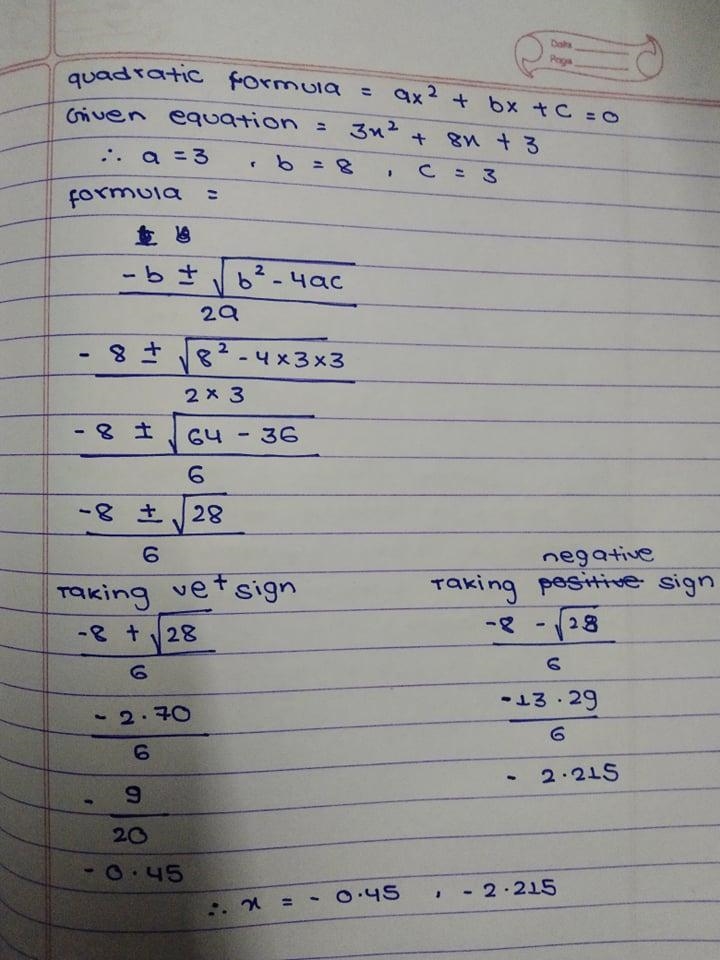 Date
Page
quadratic formula = ax² + bx + c = 0
Given equation = 3x² + 8x + 3
∴ a = 3 , b = 8 , c = 3
formula =
-b ± √b² - 4ac
2a
- 8 ± √8² - 4×3×3
2 × 3
-8 ± √64 - 36
6
-8 ± √28
6
Taking ve+ sign
-8 + √28
6
- 2.70
6
- 9
20
- 0.45
negative
Taking positive sign
-8 - √28
6
-13.29
6
- 2.215
∴ x = - 0.45 , - 2.215